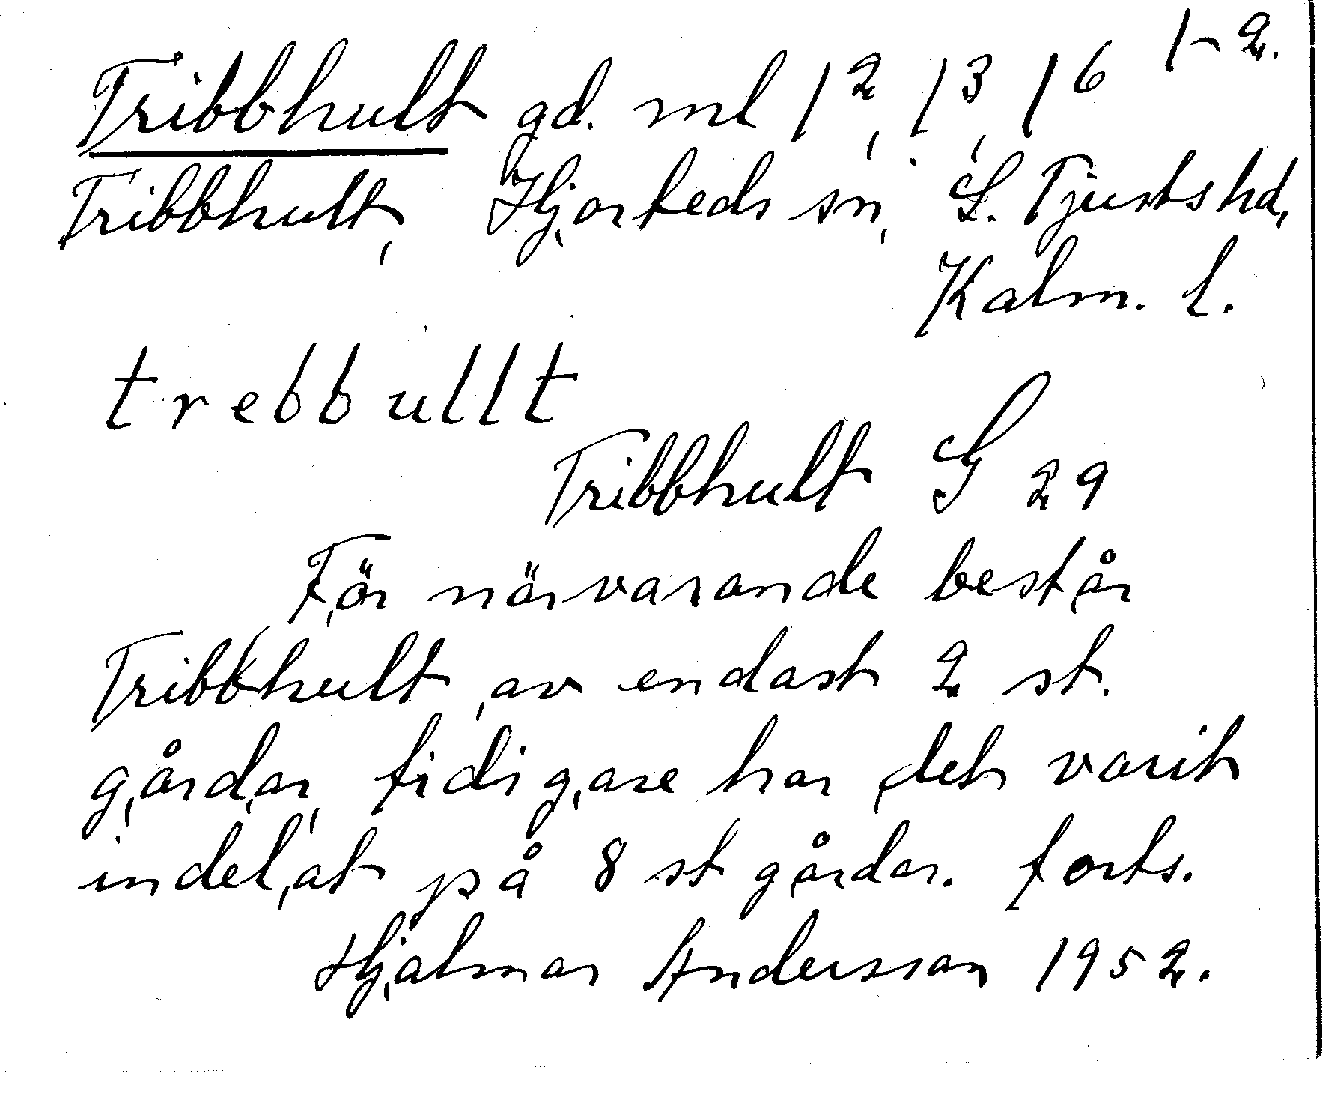 1-2.
Tribbhult gd. ml 1², 1³, 1⁶
Tribbhult, Hjorteds sn, S. Tjusts hd,
Kalm. l.
trebbullt
Tribbhult G 29
För närvarande består
Tribbhult av endast 2 st.
gårdar, tidigare har det varit
indelat på 8 st gårdar. forts.
Hjalmar Andersson 1952.